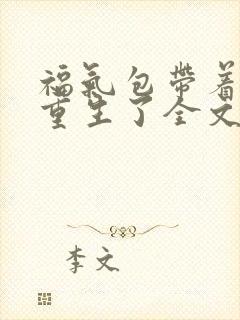 福氣包帶着
重生了全文
李文